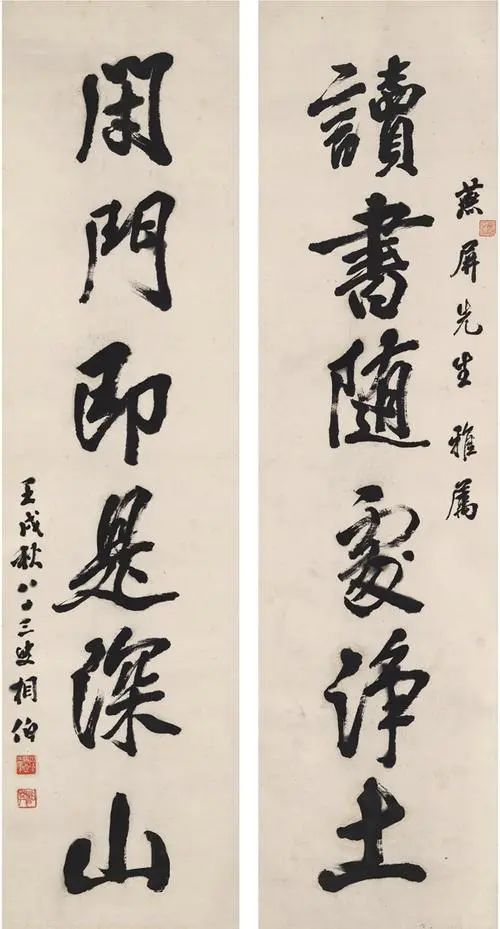 燕屏先生 雅屬
讀書随處淨土
閉門即是深山
壬戌秋八十三叟相伯